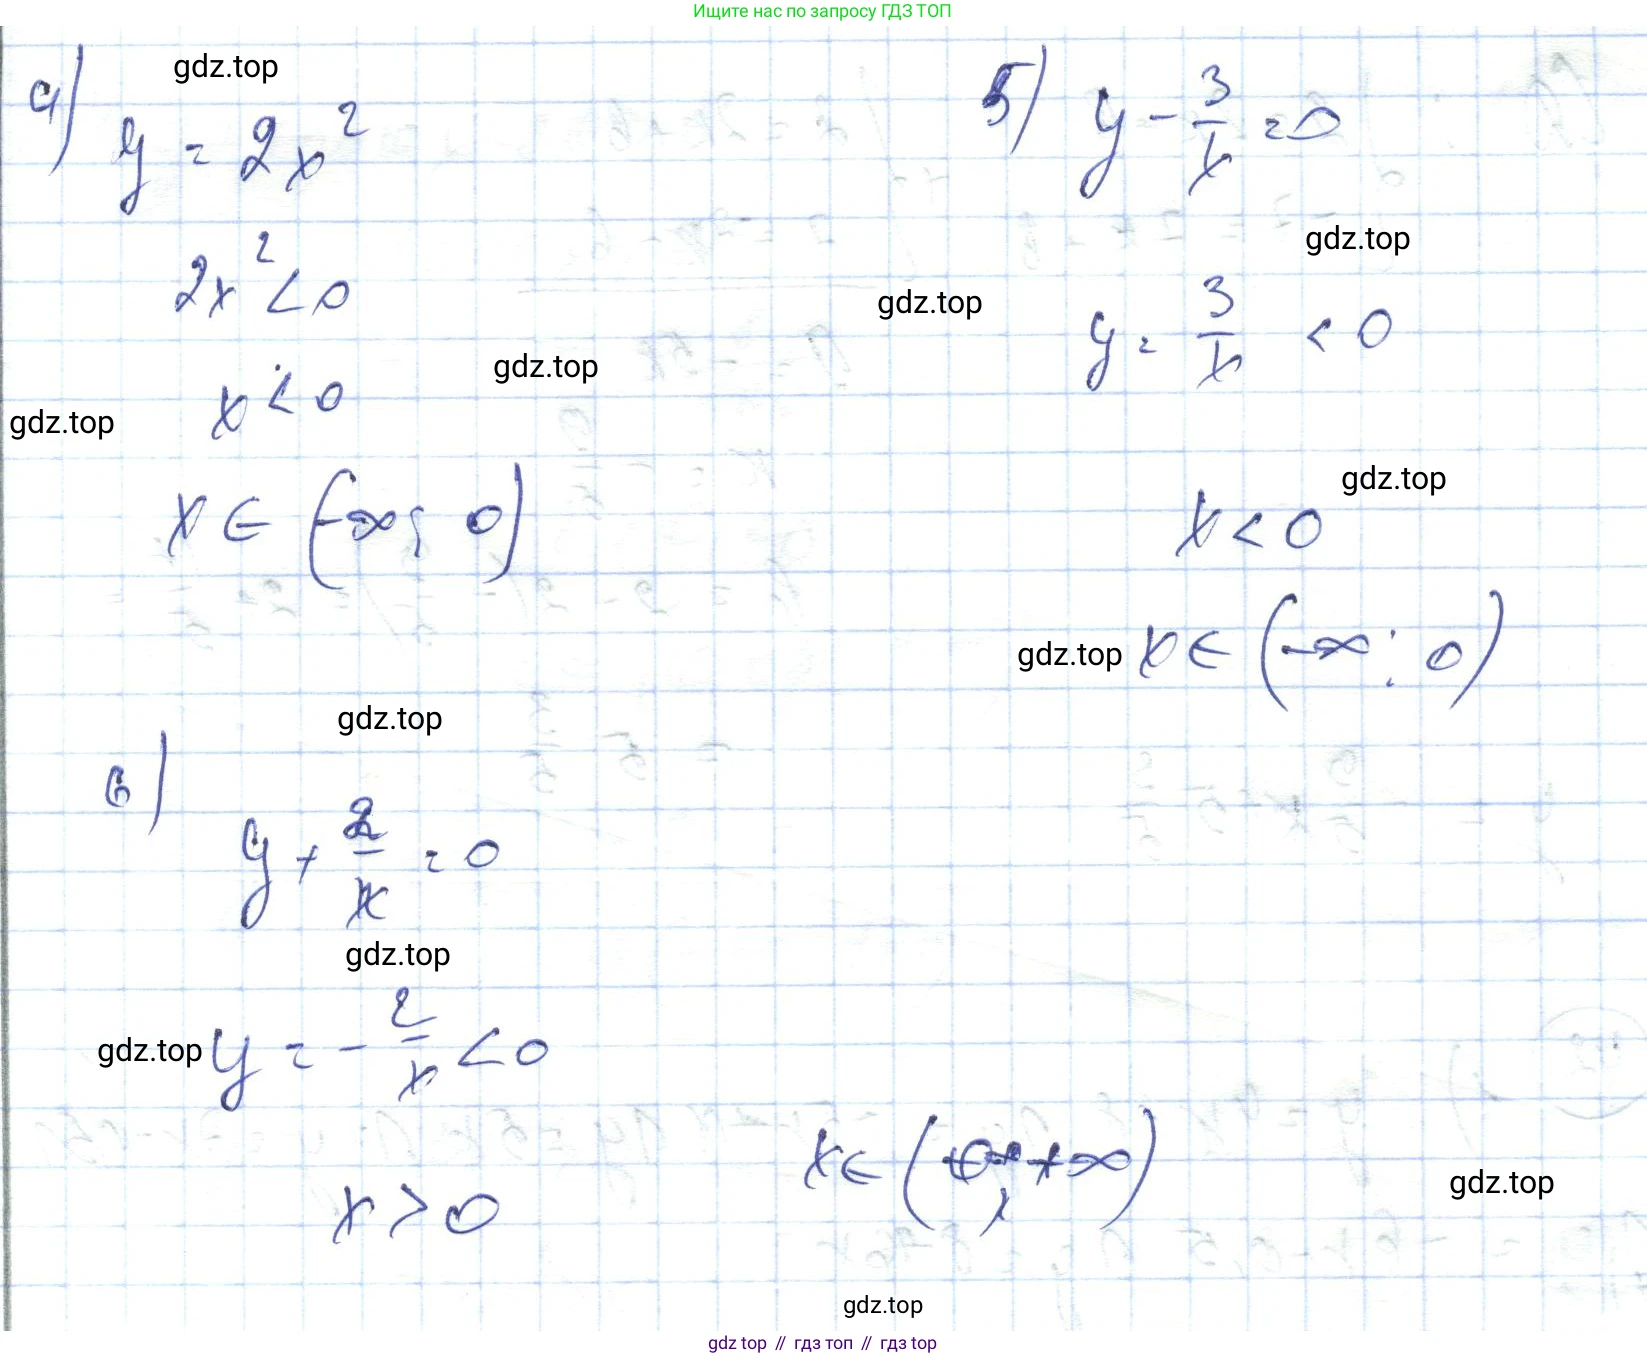 Ищите нас по запросу ГДЗ ТОП
4) gdz.top
y = 2x²
2x² < 0
gdz.top
x < 0
gdz.top
x ∈ (-∞; 0)
5) y - 3/x = 0
gdz.top
gdz.top
y = 3/x < 0
gdz.top
x < 0
gdz.top x ∈ (-∞; 0)
gdz.top
6)
y + 2/x = 0
gdz.top
gdz.top y = - 2/x < 0
x > 0
x ∈ (0; +∞)
gdz.top
gdz.top
gdz top // гдз топ // гдз top